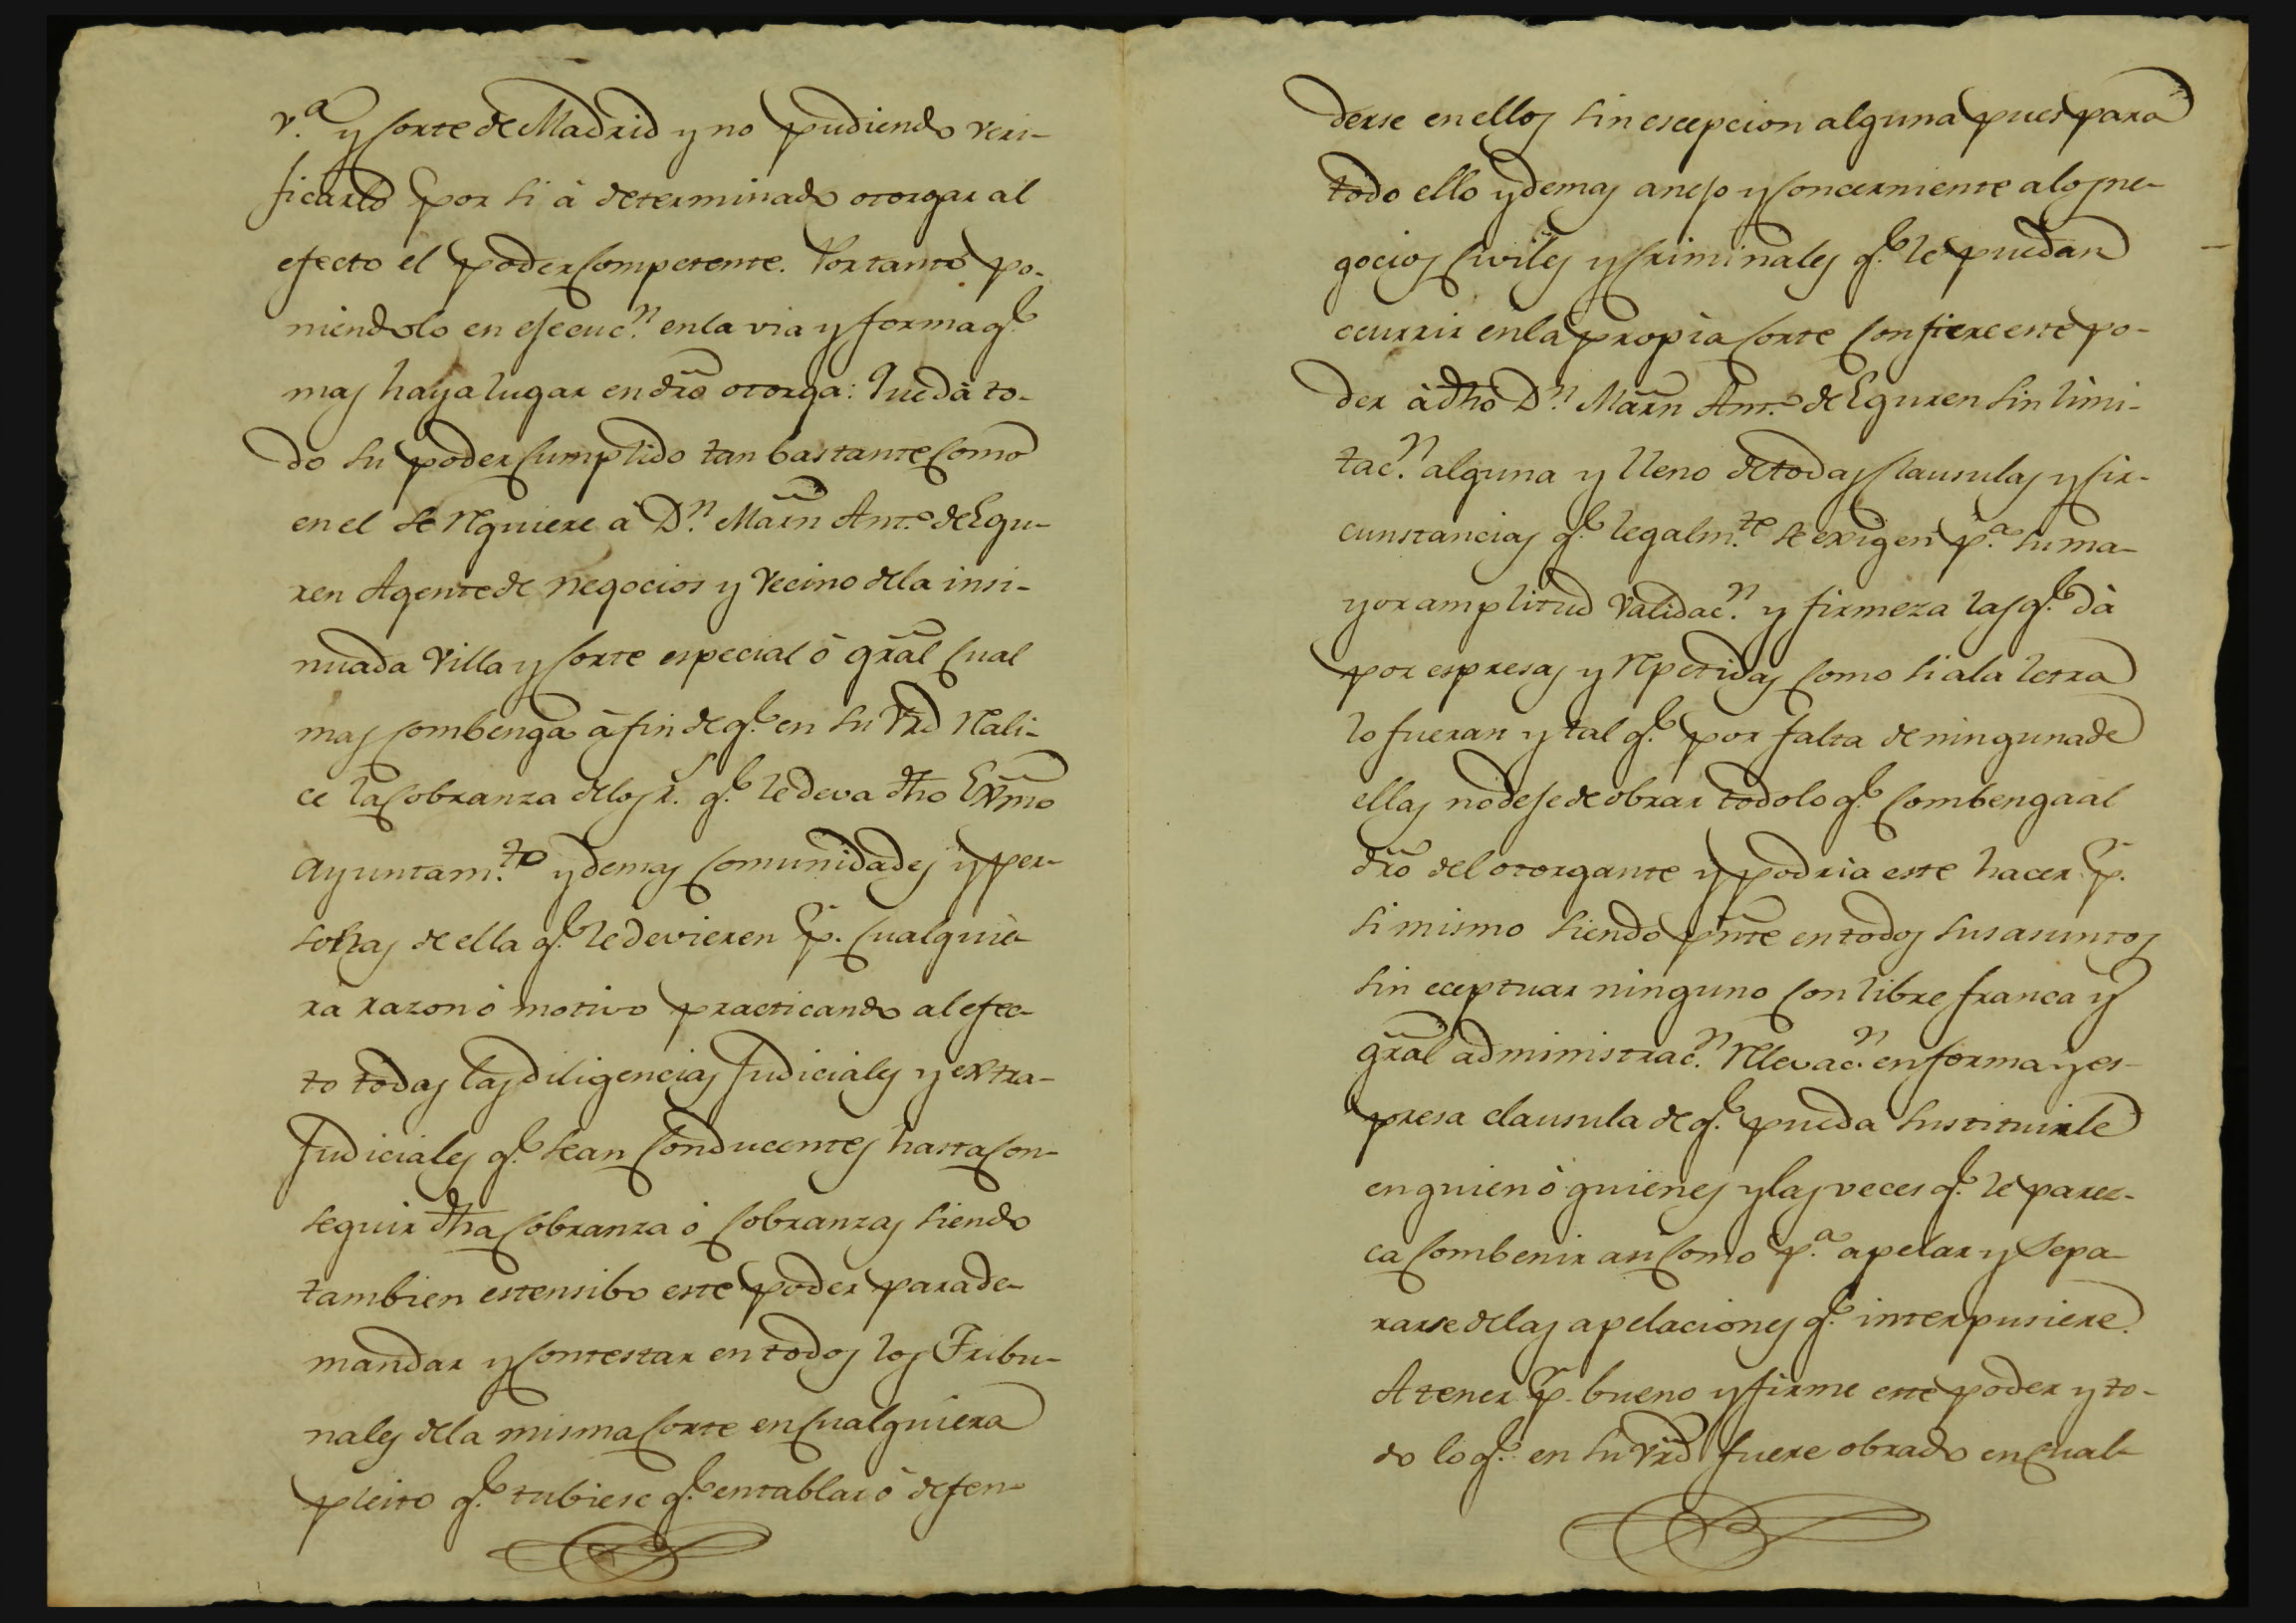 v.ª y Corte de Madrid y no pudiendo veri-
ficarlo por si à determinado otorgar al
efecto el poder Competente. Por tanto po-
niendolo en ejecuc.n en la via y forma q.e
mas haya lugar en dr̃o otorga: Que dà to-
do su poder Cumplido tan bastante Como
en el se requiere à D.n Mar̃n Ant.o de Egu-
ren Agente de negocios y vecino de la insi-
nuada Villa y Corte especial ò gr̃al Cual
mas Combenga à fin de q.e en su vr̃d reali-
ce la Cobranza de los r.s q.e le deva dho Exm̃o
Ayuntam.to y demas Comunidades y per-
sonas de ella q.e le devieren p. Cualquie-
ra razon ò motivo practicando al efec-
to todas las diligencias Judiciales y extra-
Judiciales q.e sean Conducentes hasta Con-
seguir dha Cobranza ò Cobranzas siendo
tambien estensibo este poder para de-
mandar y Contestar en todos los Tribu-
nales de la misma Corte en Cualquiera
pleito q.e tubiese q.e entablar ò defen-
derse en ellos sin escepcion alguna pues para
todo ello y demas anejo y Concerniente a los ne-
gocios Civiles y Criminales q.e le puedan
ocurrir en la propia Corte Confiere este po-
der à dho D.n Mar̃n Ant.o de Eguren sin limi-
tac.n alguna y lleno de todas Clausulas y Cir-
cunstancias q.e legalm.te se exigen p.a su ma-
yor amplitud validac.n y firmeza las q.e dà
por espresas y repetidas Como si a la letra
lo fueran y tal q.e por falta de ninguna de
ellas no deje de obrar todo lo q.e Combenga al
dr̃o del otorgante y podria este hacer p.
si mismo siendo pñte en todos sus asuntos
sin eceptuar ninguno Con libre franca y
gr̃al administrac.n relevac.n en forma y es-
presa clausula de q.e pueda sustituirle
en quien ò quienes y las veces q.e le parez-
ca Combenir asi Como p.a apelar y sepa-
rarse de las apelaciones q.e interpusiere.
A tener p. bueno y firme este poder y to-
do lo q.e en su vr̃d fuere obrado en Cual-